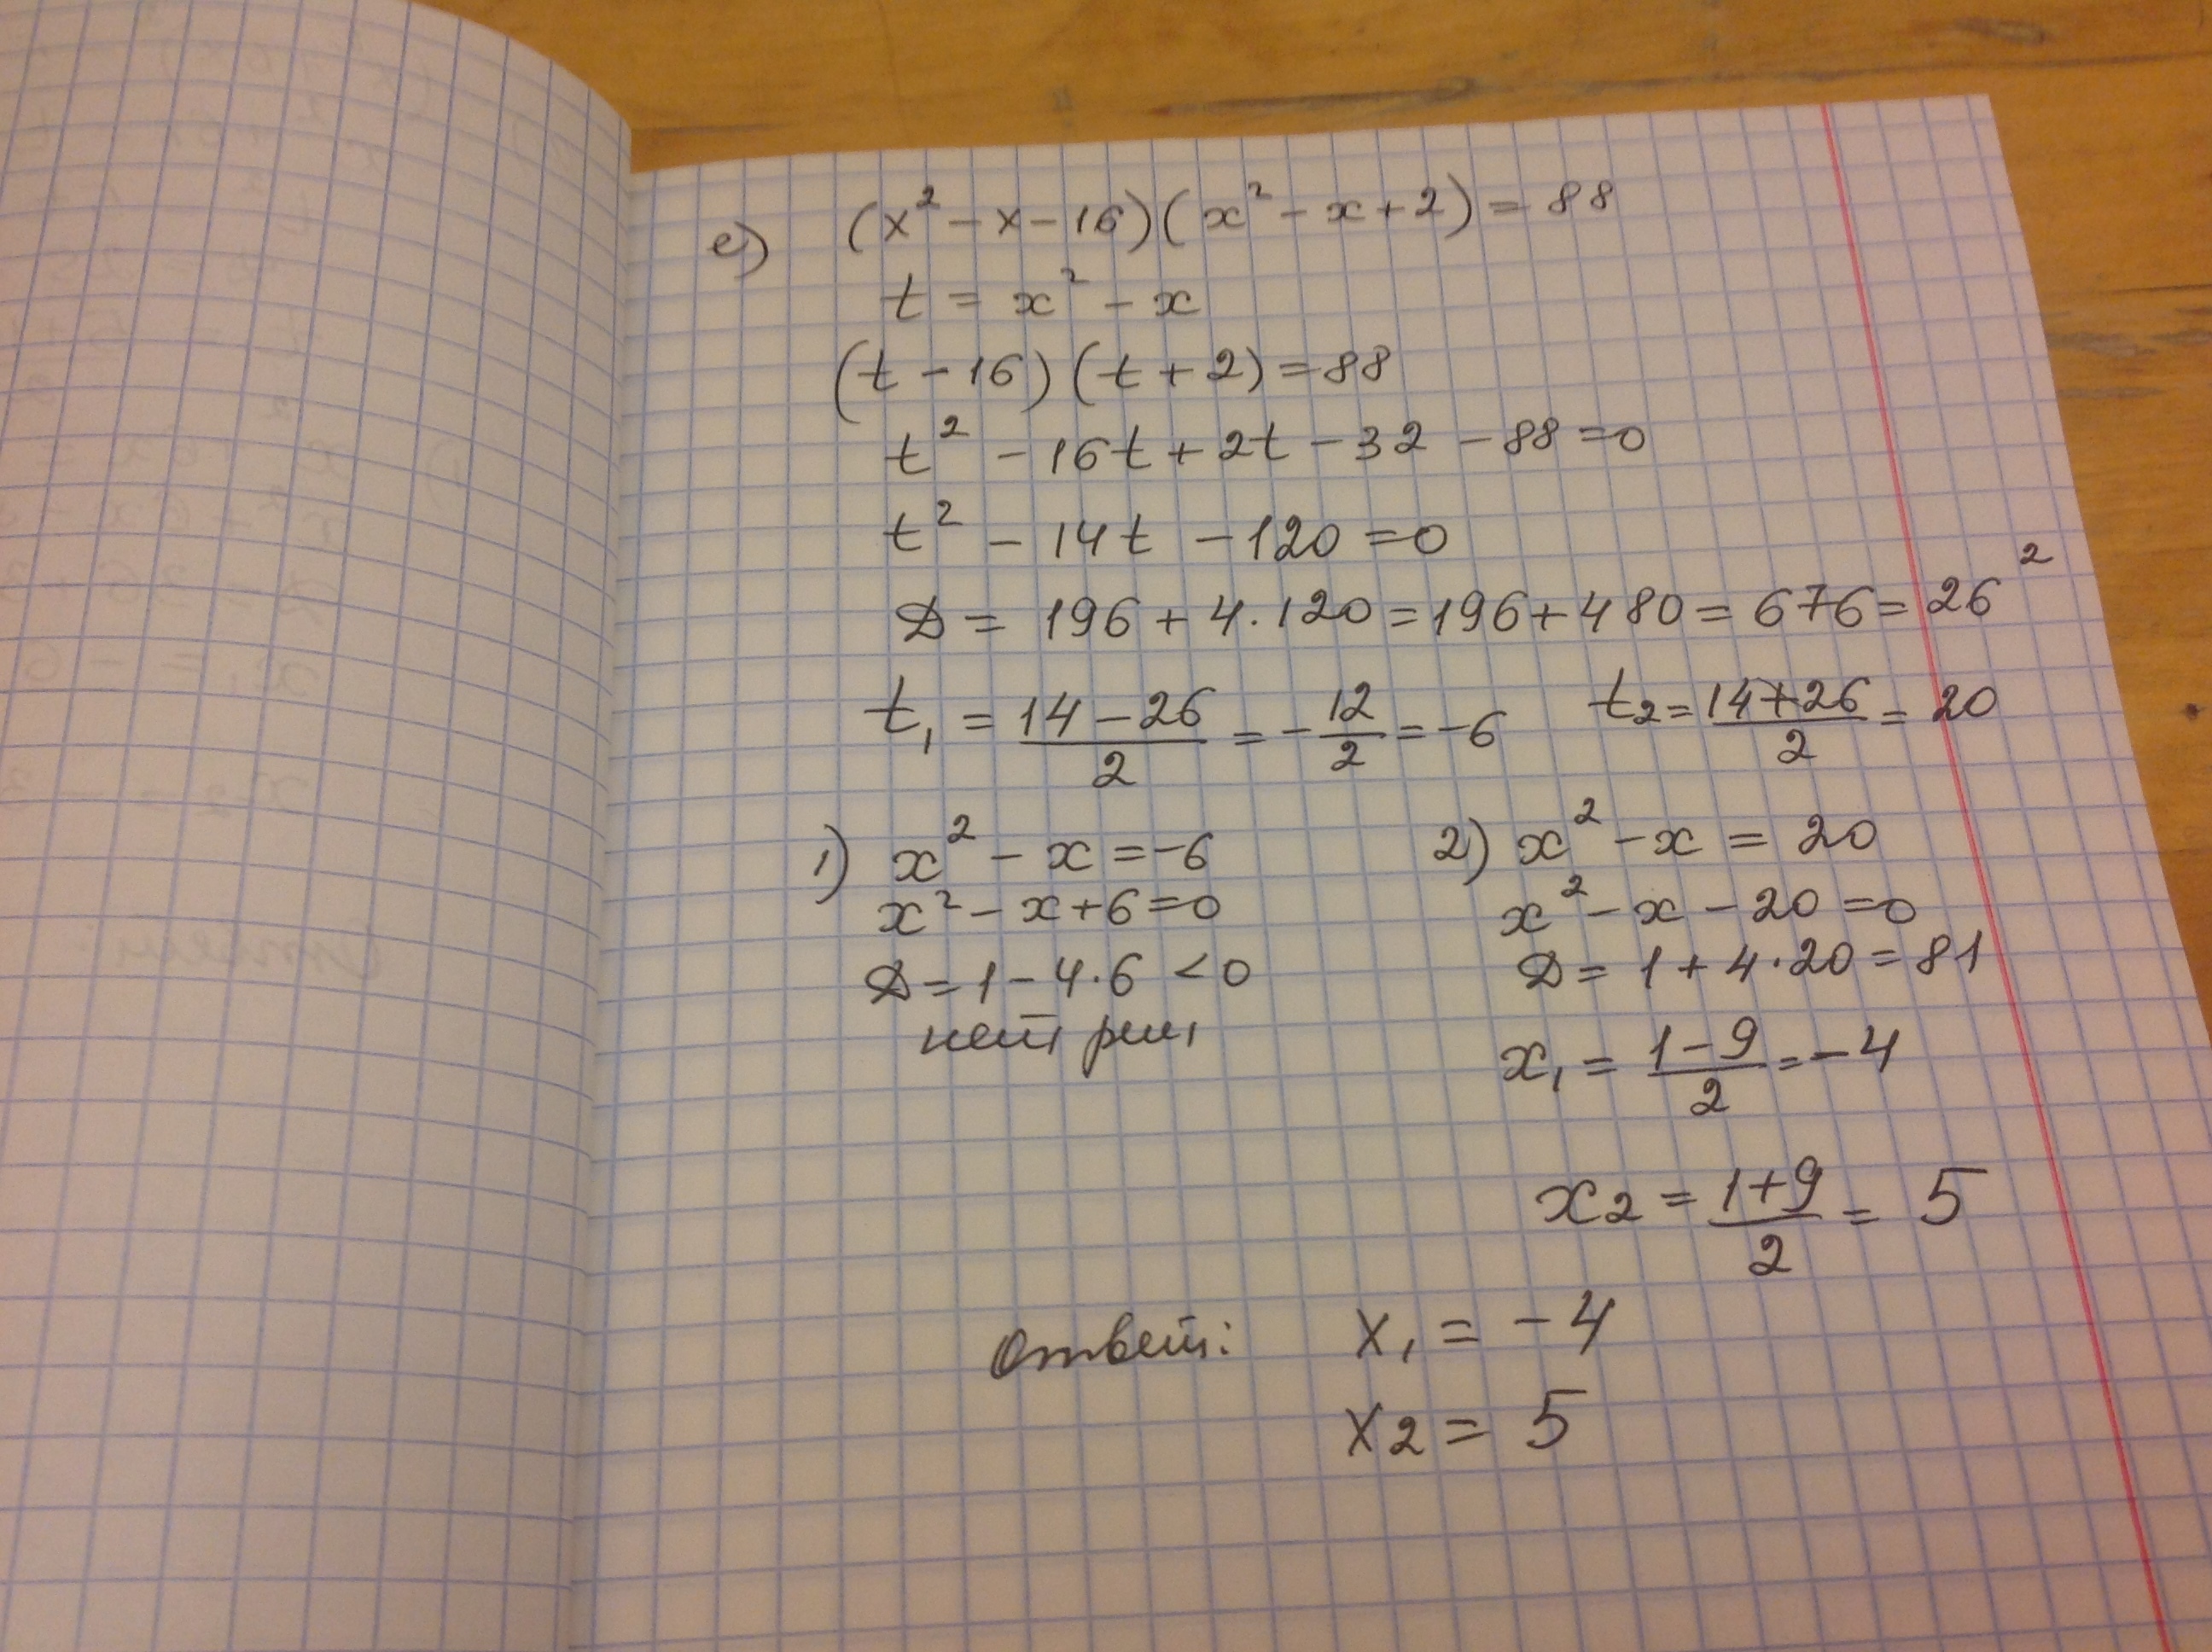 е) (x² - x - 16)(x² - x + 2) = 88
t = x² - x
(t - 16)(t + 2) = 88
t² - 16t + 2t - 32 - 88 = 0
t² - 14t - 120 = 0
D = 196 + 4·120 = 196 + 480 = 676 = 26²
t₁ = (14 - 26)/2 = -12/2 = -6 t₂ = (14 + 26)/2 = 20
1) x² - x = -6
x² - x + 6 = 0
D = 1 - 4·6 < 0
нет реш,
2) x² - x = 20
x² - x - 20 = 0
D = 1 + 4·20 = 81
x₁ = (1 - 9)/2 = -4
x₂ = (1 + 9)/2 = 5
Ответ: x₁ = -4
x₂ = 5